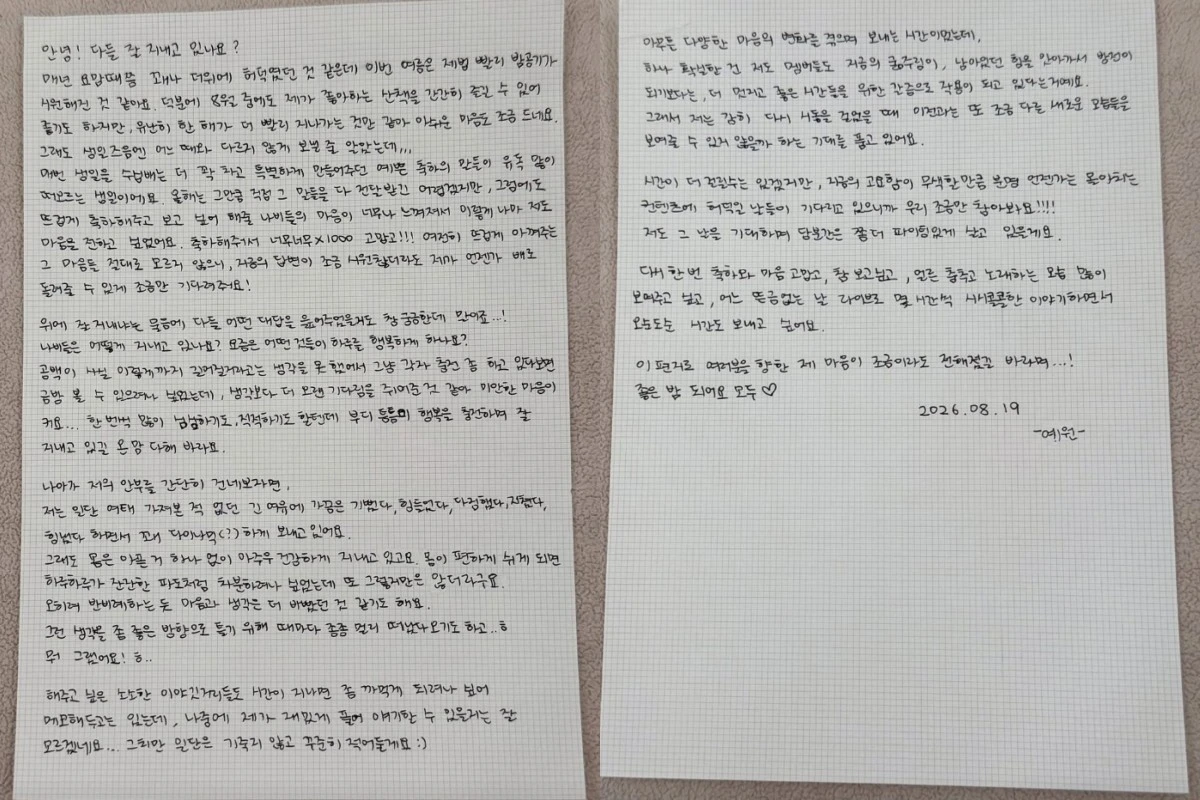 안녕! 다들 잘 지내고 있나요?
매년 요맘때쯤 꽤나 더위에 허덕였던 것 같은데 이번 여름은 제법 빨리 밤공기가
시원해진 것 같아요. 덕분에 8월 중에도 제가 좋아하는 산책을 간간히 즐길 수 있어
좋기도 하지만, 유난히 한 해가 더 빨리 지나가는 것만 같아 아쉬운 마음도 조금 드네요.
그래도 생일즈음엔 어느 때와 다르지 않게 보낼 줄 알았는데,,,
매번 생일을 수십배는 더 꽉 차고 특별하게 만들어주던 예쁜 축하의 말들이 유독 많이
떠오르는 생일이에요. 올해는 그만큼 직접 그 말들을 다 전달받긴 어렵겠지만, 그럼에도
뜨겁게 축하해주고 보고 싶어 해줄 나비들의 마음이 너무나 느껴져서 이렇게 나마 저도
마음을 전하고 싶었어요. 축하해주셔서 너무너무×1000 고맙고!!! 여전히 뜨겁게 아껴주는
그 마음들 절대로 모르지 않으니, 지금의 답변이 조금 시원찮더라도 제가 언젠가 배로
돌려줄 수 있게 조금만 기다려주어요!
위에 잘 지내냐는 물음에 다들 어떤 대답을 읊어주었을지도 참 궁금한데 말이죠...!
나비들은 어떻게 지내고 있나요? 요즘은 어떤 것들이 하루를 행복하게 하나요?
공백이 사실 이렇게까지 길어질거라고는 생각을 못 했어서 그냥 각자 충전 좀 하고 있다보면
금방 볼 수 있으려나 싶었는데, 생각보다 더 오랜 기다림을 쥐어준 것 같아 미안한 마음이
커요... 한 번씩 많이 심심하기도, 적적하기도 할텐데 부디 틈틈이 행복을 충전하며 잘
지내고 있길 온 맘 다해 바라요.
나아가 저의 안부를 간단히 건네보자면,
저는 일단 여태 가져본 적 없던 긴 여유에 가끔은 기뻤다, 힘들었다, 다짐했다, 지쳤다,
힘냈다 하면서 꽤 다이나믹(?)하게 보내고 있어요.
그래도 몸은 아픈 거 하나 없이 아주우 건강하게 지내고 있고요. 몸이 편하게 쉬게 되면
하루하루가 잔잔한 파도처럼 차분하려나 싶었는데 또 그렇지만은 않더라구요.
오히려 반비례하는 듯 마음과 생각은 더 바빴던 것 같기도 해요.
그런 생각을 좀 좋은 방향으로 틀기 위해 때마다 종종 멀리 떠났다오기도 하고..ㅎ
뭐 그랬어요! ㅎ..
해주고 싶은 소소한 이야깃거리들도 시간이 지나면 좀 까먹게 되려나 싶어
메모해두고는 있는데, 나중에 제가 재밌게 풀어 얘기할 수 있을지는 잘
모르겠네요... 그치만 일단은 기죽지 않고 꾸준히 적어둘게요 :)
아무튼 다양한 마음의 변화를 겪으며 보내는 시간이었는데,
하나 확실한 건 저도 멤버들도 지금의 굶주림이, 남아있던 힘을 앗아가서 방전이
되기보다는, 더 멋지고 좋은 시간들을 위한 갈증으로 작용이 되고 있다는거예요.
그래서 저는 감히 다시 시동을 걸었을 때 이전과는 또 조금 다른 새로운 모습들을
보여줄 수 있지 않을까 하는 기대를 품고 있어요.
시간이 더 걸릴수는 있겠지만, 지금의 고요함이 무색할만큼 분명 언젠가는 몰아치는
컨텐츠에 허덕일 날들이 기다리고 있으니까 우리 조금만 참아봐요!!!!
저도 그 날을 기대하며 당분간은 쫌 더 파이팅있게 살고 있을게요.
다시 한 번 축하와 마음 고맙고, 참 보고싶고, 얼른 춤추고 노래하는 모습 많이
보여주고 싶고, 어느 뜬금없는 날 라이브로 몇 시간씩 시시콜콜한 이야기하면서
오순도순 시간도 보내고 싶어요.
이 편지로 여러분을 향한 제 마음이 조금이라도 전해졌길 바라며...!
좋은 밤 되어요 모두♡
2026.08.19
-예원-